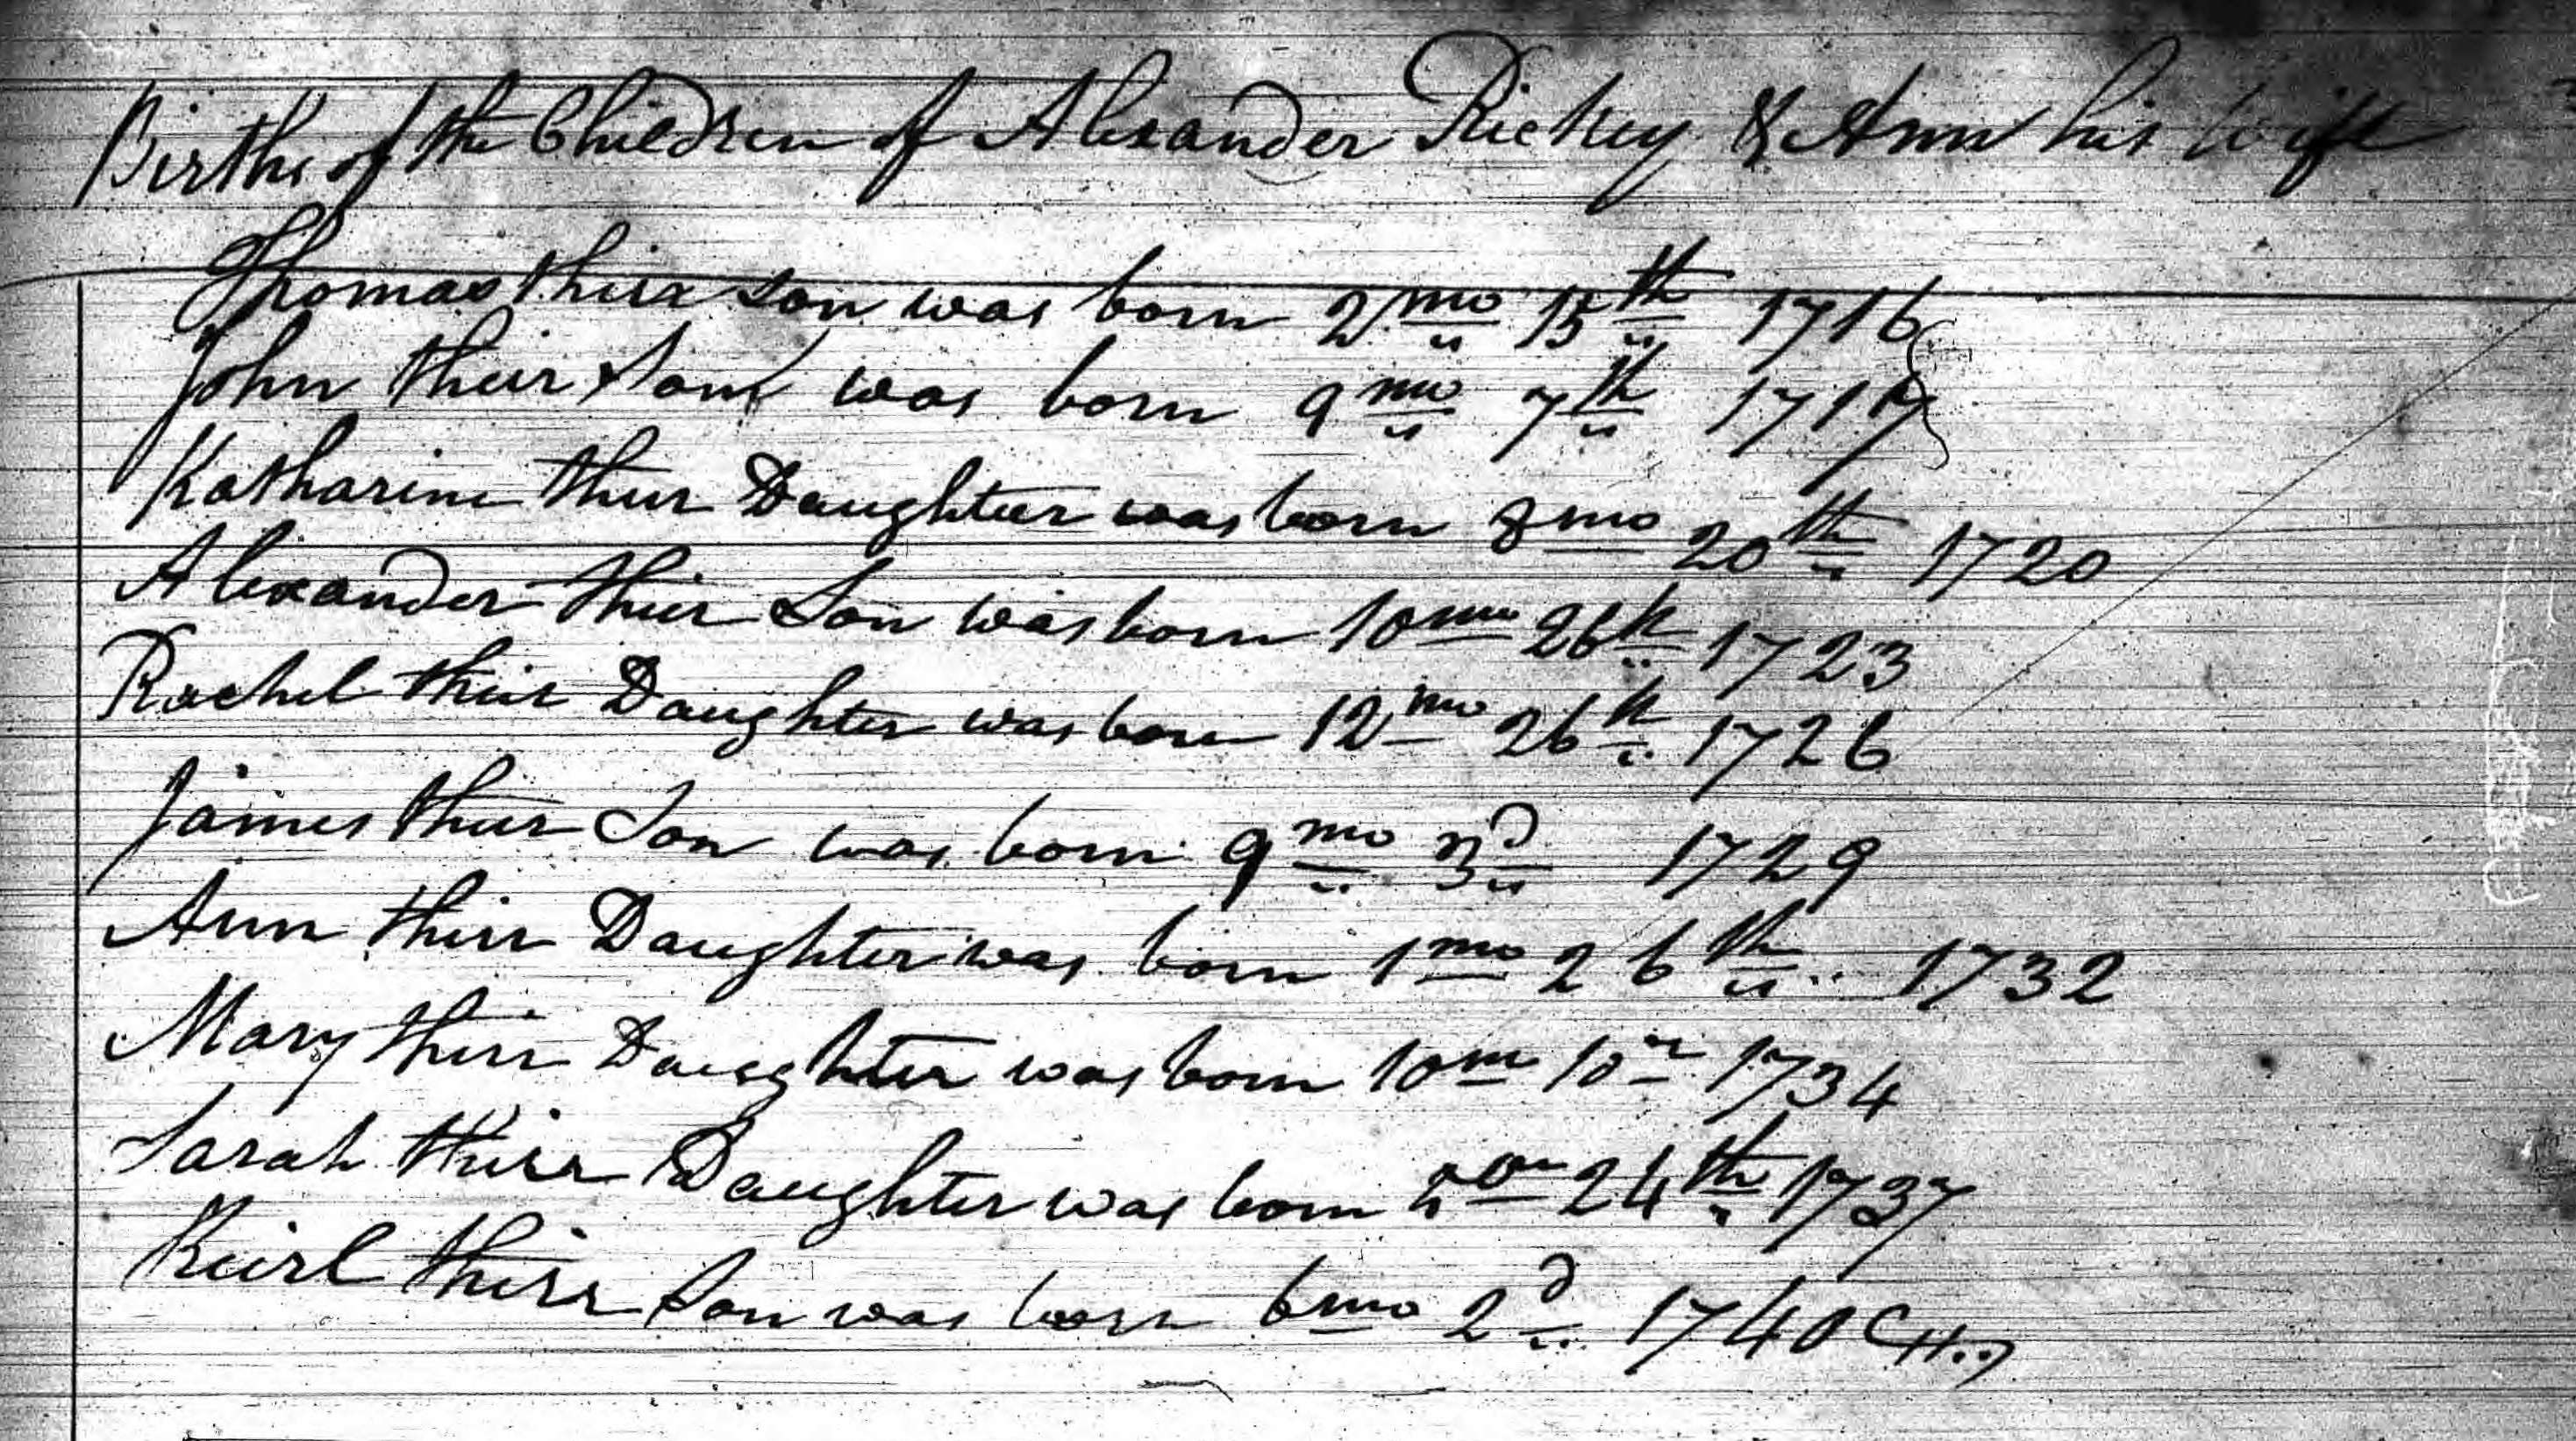 Births of the Children of Alexander Rickey & Ann his wife
Thomas their Son was born 2mo 15th 1716
John their Son was born 9mo 7th 1717
Katharine their Daughter was born 8mo 20th 1720
Alexander their Son was born 10mo 26th 1723
Rachel their Daughter was born 12mo 26th 1726
James their Son was born 9mo 3d 1729
Ann their Daughter was born 1mo 26th 1732
Mary their Daughter was born 10m 10 1734
Sarah their Daughter was born 24th 1737
Keirl their Son was born 6mo 2d 1740